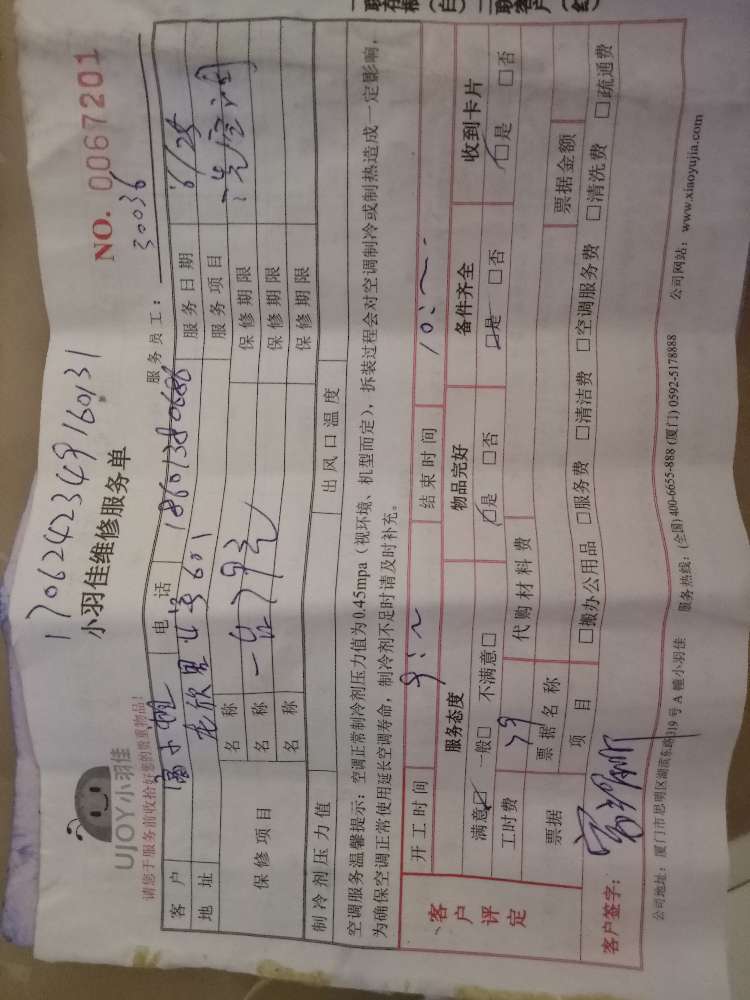 联存根（白） 联客户（红）
NO. 0067201
17062423449160131
30036
小羽佳维修服务单
UJOY小羽佳
请您于服务前收拾好您的贵重物品！
服务员工：
客户 电话 18601380686 服务日期 6/25
地址 龙欣里 601 服务项目 洗空调
保修项目 名称 一台79元 保修期限
名称 保修期限
名称 保修期限
制冷剂压力值 出风口温度
空调服务温馨提示：空调正常制冷剂压力值为0.45mpa（视环境、机型而定），拆装过程会对空调制冷或制热造成一定影响，
为确保空调正常使用延长空调寿命，制冷剂不足时请及时补充。
开工时间 9:~ 结束时间 10:~
客户评定
服务态度 物品完好 备件齐全 收到卡片
满意☑ 一般□ 不满意□ ☑是 □否 ☑是 □否 ☑是 □否
工时费 79 代购材料费
票据 票据名称 票据金额
项目 □搬办公用品 □服务费 □清洁费 □空调服务费 □清洗费 □疏通费
客户签字：
公司地址：厦门市思明区湖滨东路319号A幢小羽佳 服务热线：(全国) 400-6655-888 (厦门) 0592-5178888 公司网站：www.xiaoyujia.com